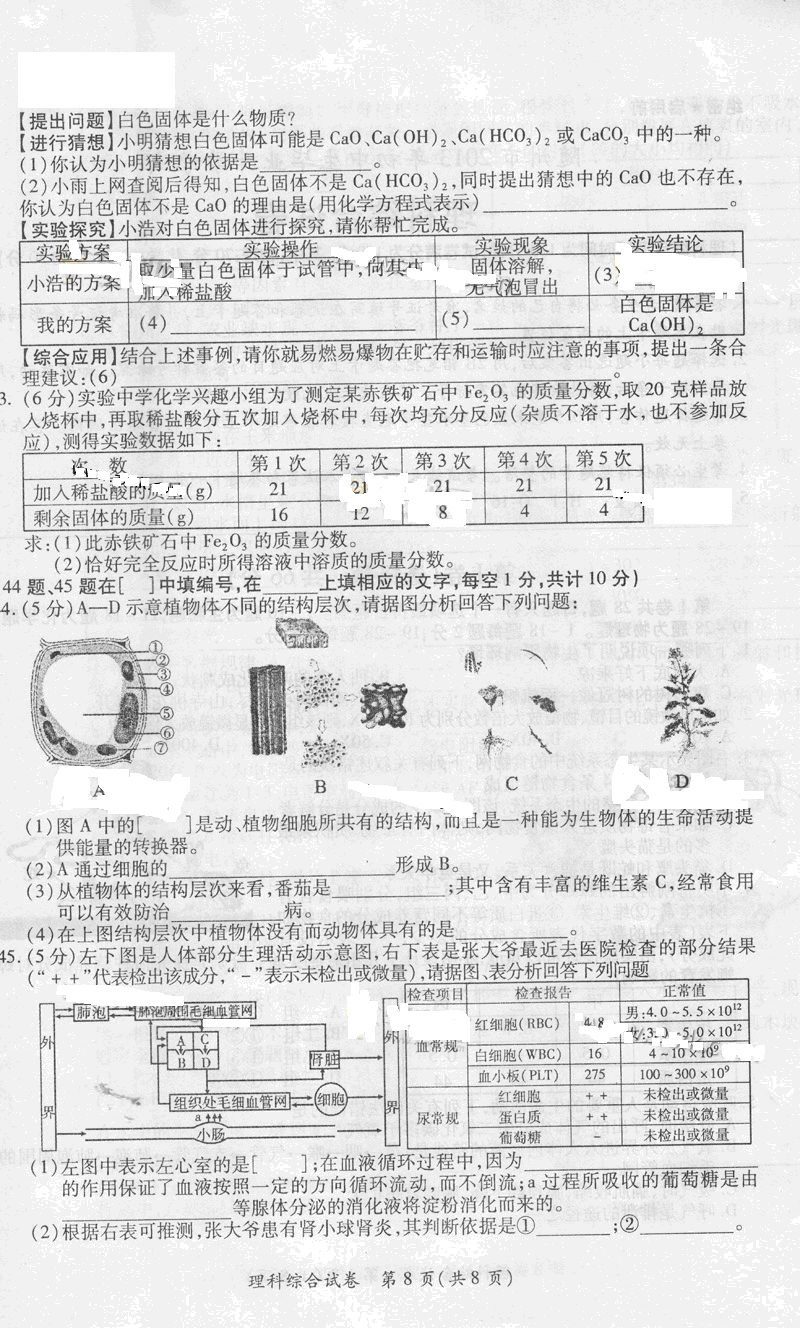 【提出问题】白色固体是什么物质?
【进行猜想】小明猜想白色固体可能是 CaO、Ca(OH)₂、Ca(HCO₃)₂ 或 CaCO₃ 中的一种。
(1)你认为小明猜想的依据是____________。
(2)小雨上网查阅后得知,白色固体不是 Ca(HCO₃)₂,同时提出猜想中的 CaO 也不存在,
你认为白色固体不是 CaO 的理由是(用化学方程式表示)____________。
【实验探究】小浩对白色固体进行探究,请你帮忙完成。
实验方案 实验操作 实验现象 实验结论
小浩的方案 取少量白色固体于试管中,向其中加入稀盐酸 固体溶解,无气泡冒出 (3)
我的方案 (4)____________ (5)______ 白色固体是 Ca(OH)₂
【综合应用】结合上述事例,请你就易燃易爆物在贮存和运输时应注意的事项,提出一条合
理建议:(6)____________
3. (6分)实验中学化学兴趣小组为了测定某赤铁矿石中 Fe₂O₃ 的质量分数,取 20 克样品放
入烧杯中,再取稀盐酸分五次加入烧杯中,每次均充分反应(杂质不溶于水,也不参加反
应),测得实验数据如下:
次 数 第1次 第2次 第3次 第4次 第5次
加入稀盐酸的质量(g) 21 21 21 21 21
剩余固体的质量(g) 16 12 8 4 4
求:(1)此赤铁矿石中 Fe₂O₃ 的质量分数。
(2)恰好完全反应时所得溶液中溶质的质量分数。
44题、45题在[ ]中填编号,在______上填相应的文字,每空1分,共计10分)
4.(5分)A—D 示意植物体不同的结构层次,请据图分析回答下列问题:
① ② ③ ④ ⑤ ⑥ ⑦
A B C D
(1)图 A 中的[ ]是动、植物细胞所共有的结构,而且是一种能为生物体的生命活动提
供能量的转换器。
(2)A 通过细胞的____________形成 B。
(3)从植物体的结构层次来看,番茄是____________;其中含有丰富的维生素 C,经常食用
可以有效防治____________病。
(4)在上图结构层次中植物体没有而动物体具有的是____________。
45.(5分)左下图是人体部分生理活动示意图,右下表是张大爷最近去医院检查的部分结果
(“++”代表检出该成分,“-”表示未检出或微量),请据图、表分析回答下列问题
外界 肺泡 肺泡周围毛细血管网 A C B D 肾脏 组织处毛细血管网 细胞 a 小肠 外界
检查项目 检查报告 正常值
血常规 红细胞(RBC) 4.8 男:4.0~5.5×10¹² 女:3.0~5.0×10¹²
白细胞(WBC) 16 4~10×10⁹
血小板(PLT) 275 100~300×10⁹
尿常规 红细胞 ++ 未检出或微量
蛋白质 ++ 未检出或微量
葡萄糖 - 未检出或微量
(1)左图中表示左心室的是[ ];在血液循环过程中,因为____________
的作用保证了血液按照一定的方向循环流动,而不倒流;a 过程所吸收的葡萄糖是由
____________等腺体分泌的消化液将淀粉消化而来的。
(2)根据右表可推测,张大爷患有肾小球肾炎,其判断依据是①______;②______。
理科综合试卷 第8页(共8页)